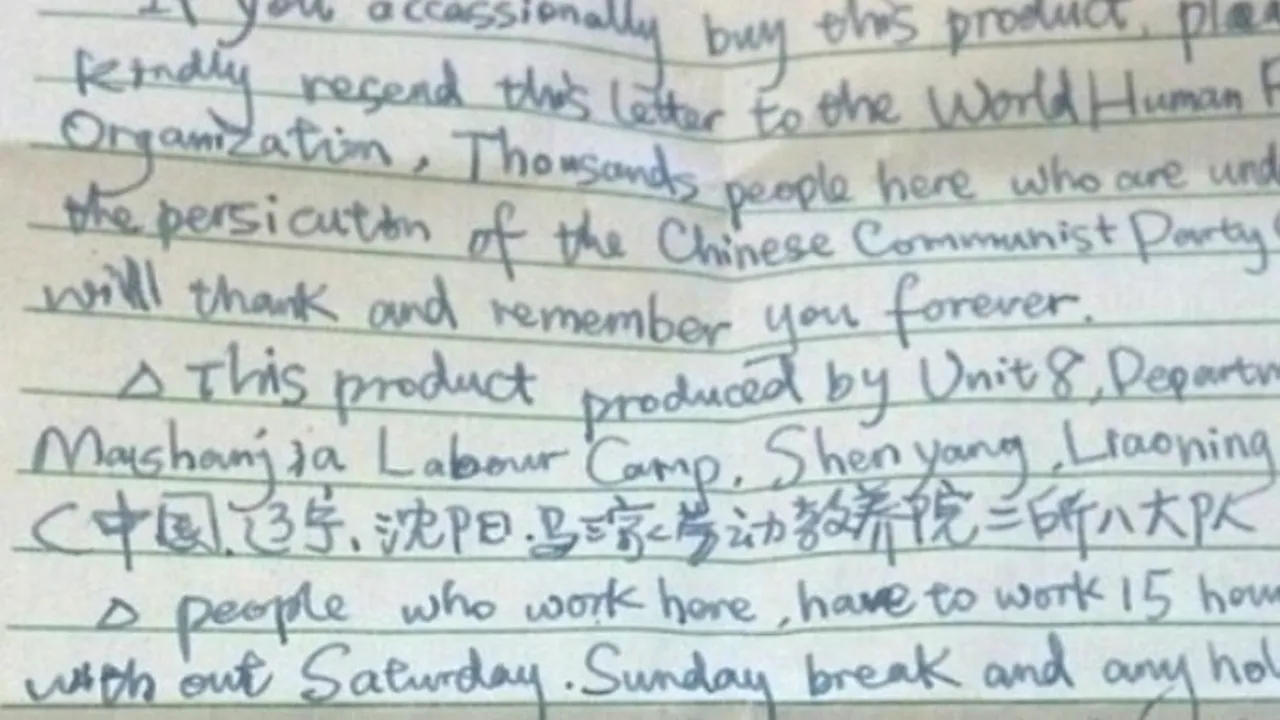 If you occassionally buy this product, plea
kindly resend this letter to the World Human R
Organization, Thousands people here who are und
the persicution of the Chinese Communist Party
will thank and remember you forever.
△ This product produced by Unit 8, Departm
Mashanjia Labour Camp, Shenyang, Liaoning
(中国.辽宁.沈阳.马三家劳动教养院二所八大队
△ people who work here, have to work 15 hou
with out Saturday. Sunday break and any hol